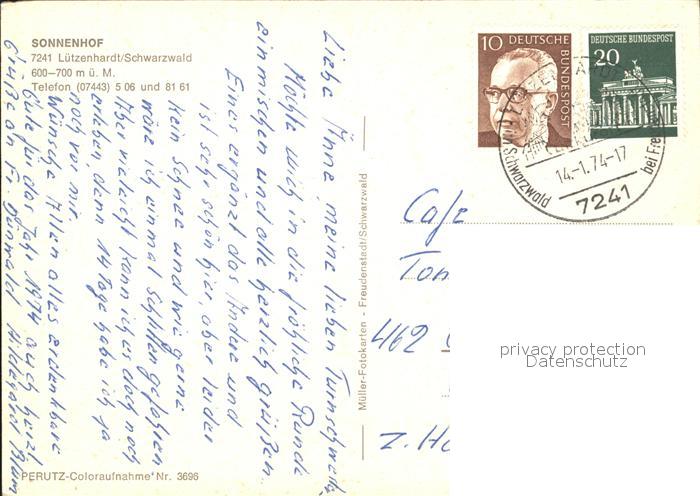 SONNENHOF
7241 Lützenhardt/Schwarzwald
600–700 m ü. M.
Telefon (07443) 5 06 und 81 61
Liebe Änne, meine lieben Turnschwestern,
Möchte mich in die fröhliche Runde
einmischen und alle herzlich grüßen.
Eines ergänzt das Andere und
ist sehr schön hier, aber leider
kein Schnee und wie gerne
wäre ich einmal Schlitten gefahren
Aber vielleicht kann ich es doch noch
erleben, denn 14 Tage habe ich ja
noch vor mir.
Wünsche Allen alles erdenkbare
Gute für das Jahr 1974 auch herzl.
Grüße an Fr. Hildegard Blum
PERUTZ-Coloraufnahme Nr. 3696
Müller-Fotokarten - Freudenstadt/Schwarzwald
10 DEUTSCHE BUNDESPOST
DEUTSCHE BUNDESPOST
20
14.-1.74-17
Schwarzwald
7241
bei Freu
Cafe
Ton
462
z. H
privacy protection
Datenschutz